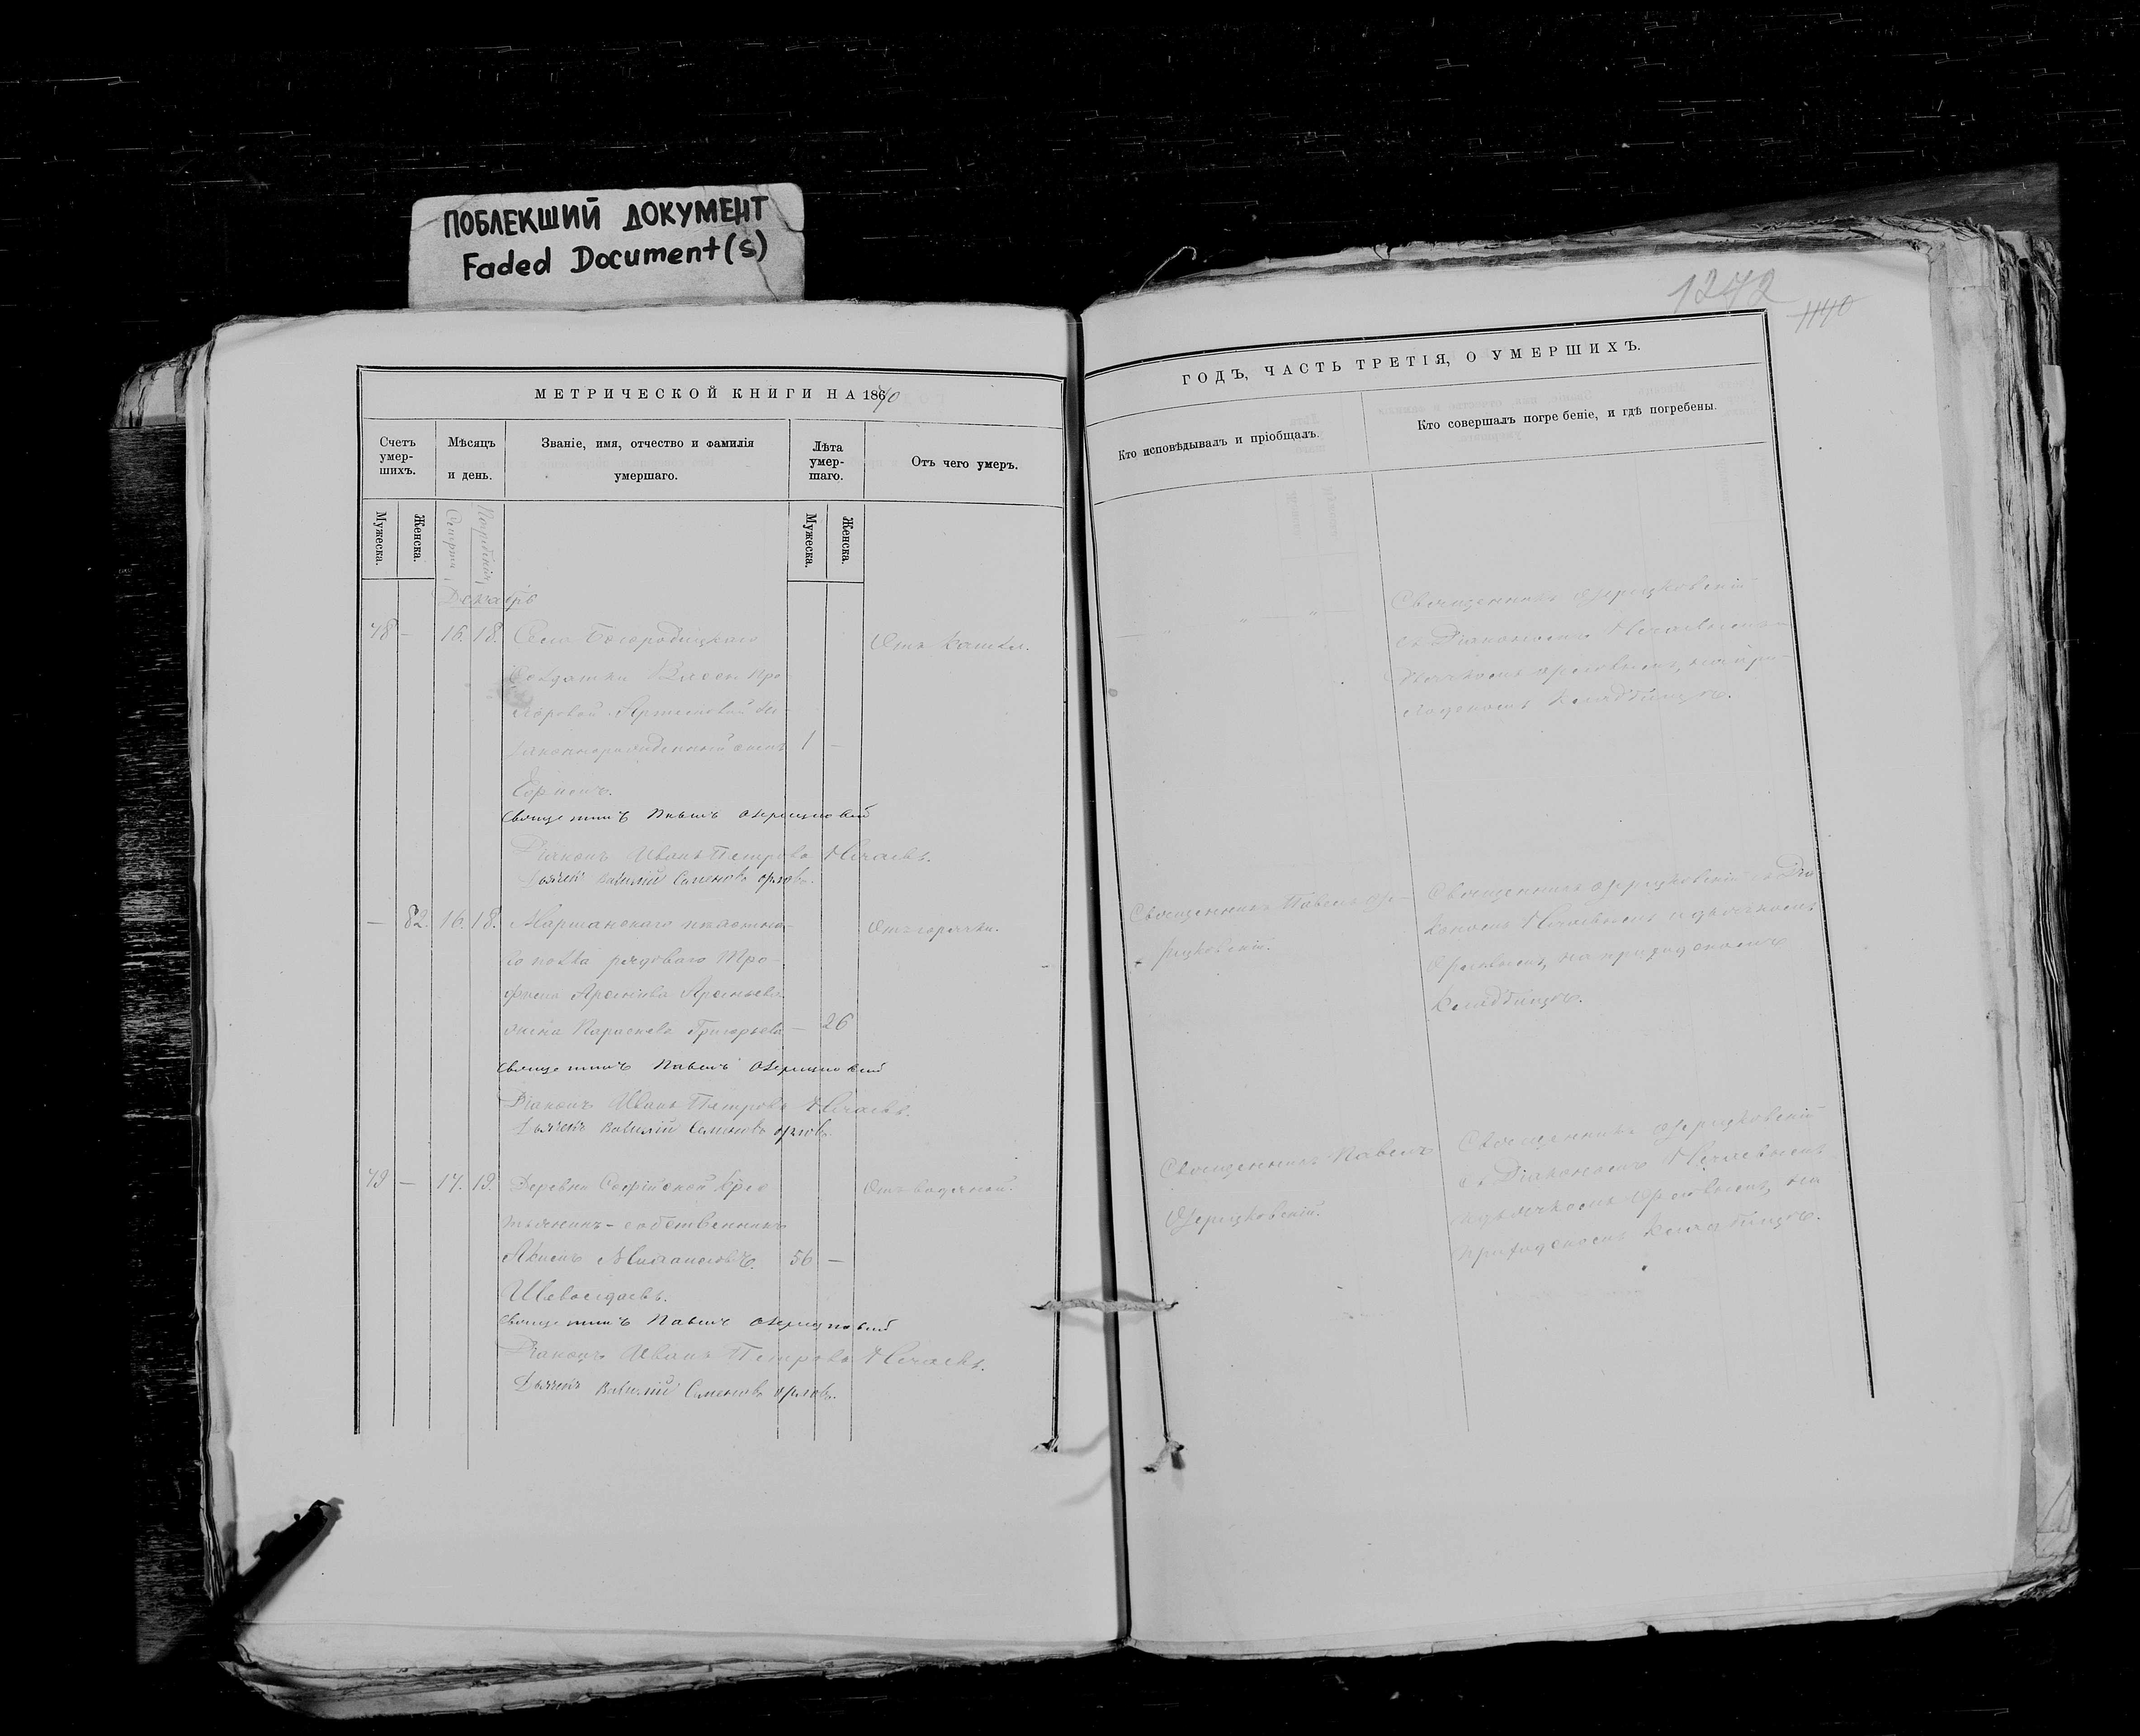 ПОБЛЕКШИЙ ДОКУМЕНТ
Faded Document(s)
1242
1140
МЕТРИЧЕСКОЙ КНИГИ НА 1870
Счетъ умер-шихъ.
Мѣсяцъ и день.
Званіе, имя, отчество и фамилія умершаго.
Лѣта умер-шаго.
Отъ чего умеръ.
Мужеска.
Женска.
Смерти
Погребенія
Мужеска.
Женска.
Декабрь
78 — 16. 18. Села Богородицкаго
Отъ кашли.
Солдатки
незаконнорожденный сынъ 1 —
Священникъ Павелъ Озерецковскій
Діаконъ Иванъ Петровъ Нечаевъ.
Дьячекъ Василій Семеновъ Орловъ.
— 82. 16. 18. Моршанскаго
Отъ горячки.
рядоваго Тро-
фима
жена Параскева Григорьева — 26
Священникъ Павелъ Озерецковскій
Діаконъ Иванъ Петровъ Нечаевъ.
Дьячекъ Василій Семеновъ Орловъ.
79 — 17. 19. Деревни Софійской Крес
Отъ водяной.
тьянинъ-собственникъ
56 —
Священникъ Павелъ Озерецковскій
Діаконъ Иванъ Петровъ Нечаевъ.
Дьячекъ Василій Семеновъ Орловъ.
ГОДЪ, ЧАСТЬ ТРЕТІЯ, О УМЕРШИХЪ.
Кто исповѣдывалъ и пріобщалъ.
Кто совершалъ погребеніе, и гдѣ погребены.
Священникъ Озерецковскій
съ Діакономъ Нечаевымъ и
Дьячкомъ Орловымъ, на при-
ходскомъ кладбищѣ.
Священникъ Павелъ Озе-
рецковскій.
Священникъ Озерецковскій съ Діа
кономъ Нечаевымъ и дьячкомъ
Орловымъ, на приходскомъ
кладбищѣ.
Священникъ Павелъ
Озерецковскій.
Священникъ Озерецковскій
съ Діакономъ Нечаевымъ
и дьячкомъ Орловымъ, на
приходскомъ кладбищѣ.